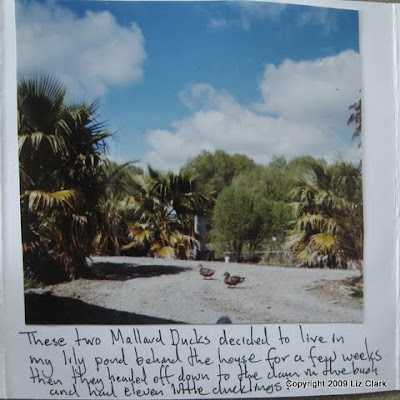 Copyright 2009 Liz Clark
These two Mallard Ducks decided to live in
my lily pond behind the house for a few weeks
then then headed off down to the dam in the bush
and had eleven little ducklings!
Copyright 2009 Liz Clark